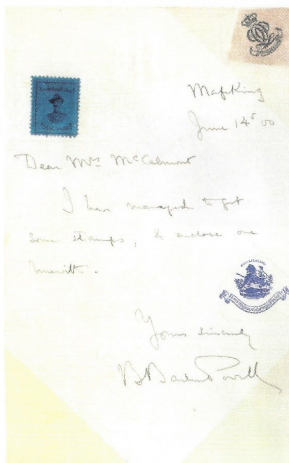 Mafeking
June 14th 00
Dear Mrs McCalmont
I have managed to get
some stamps, & enclose one
herewith.
Yours sincerely
B Baden Powell